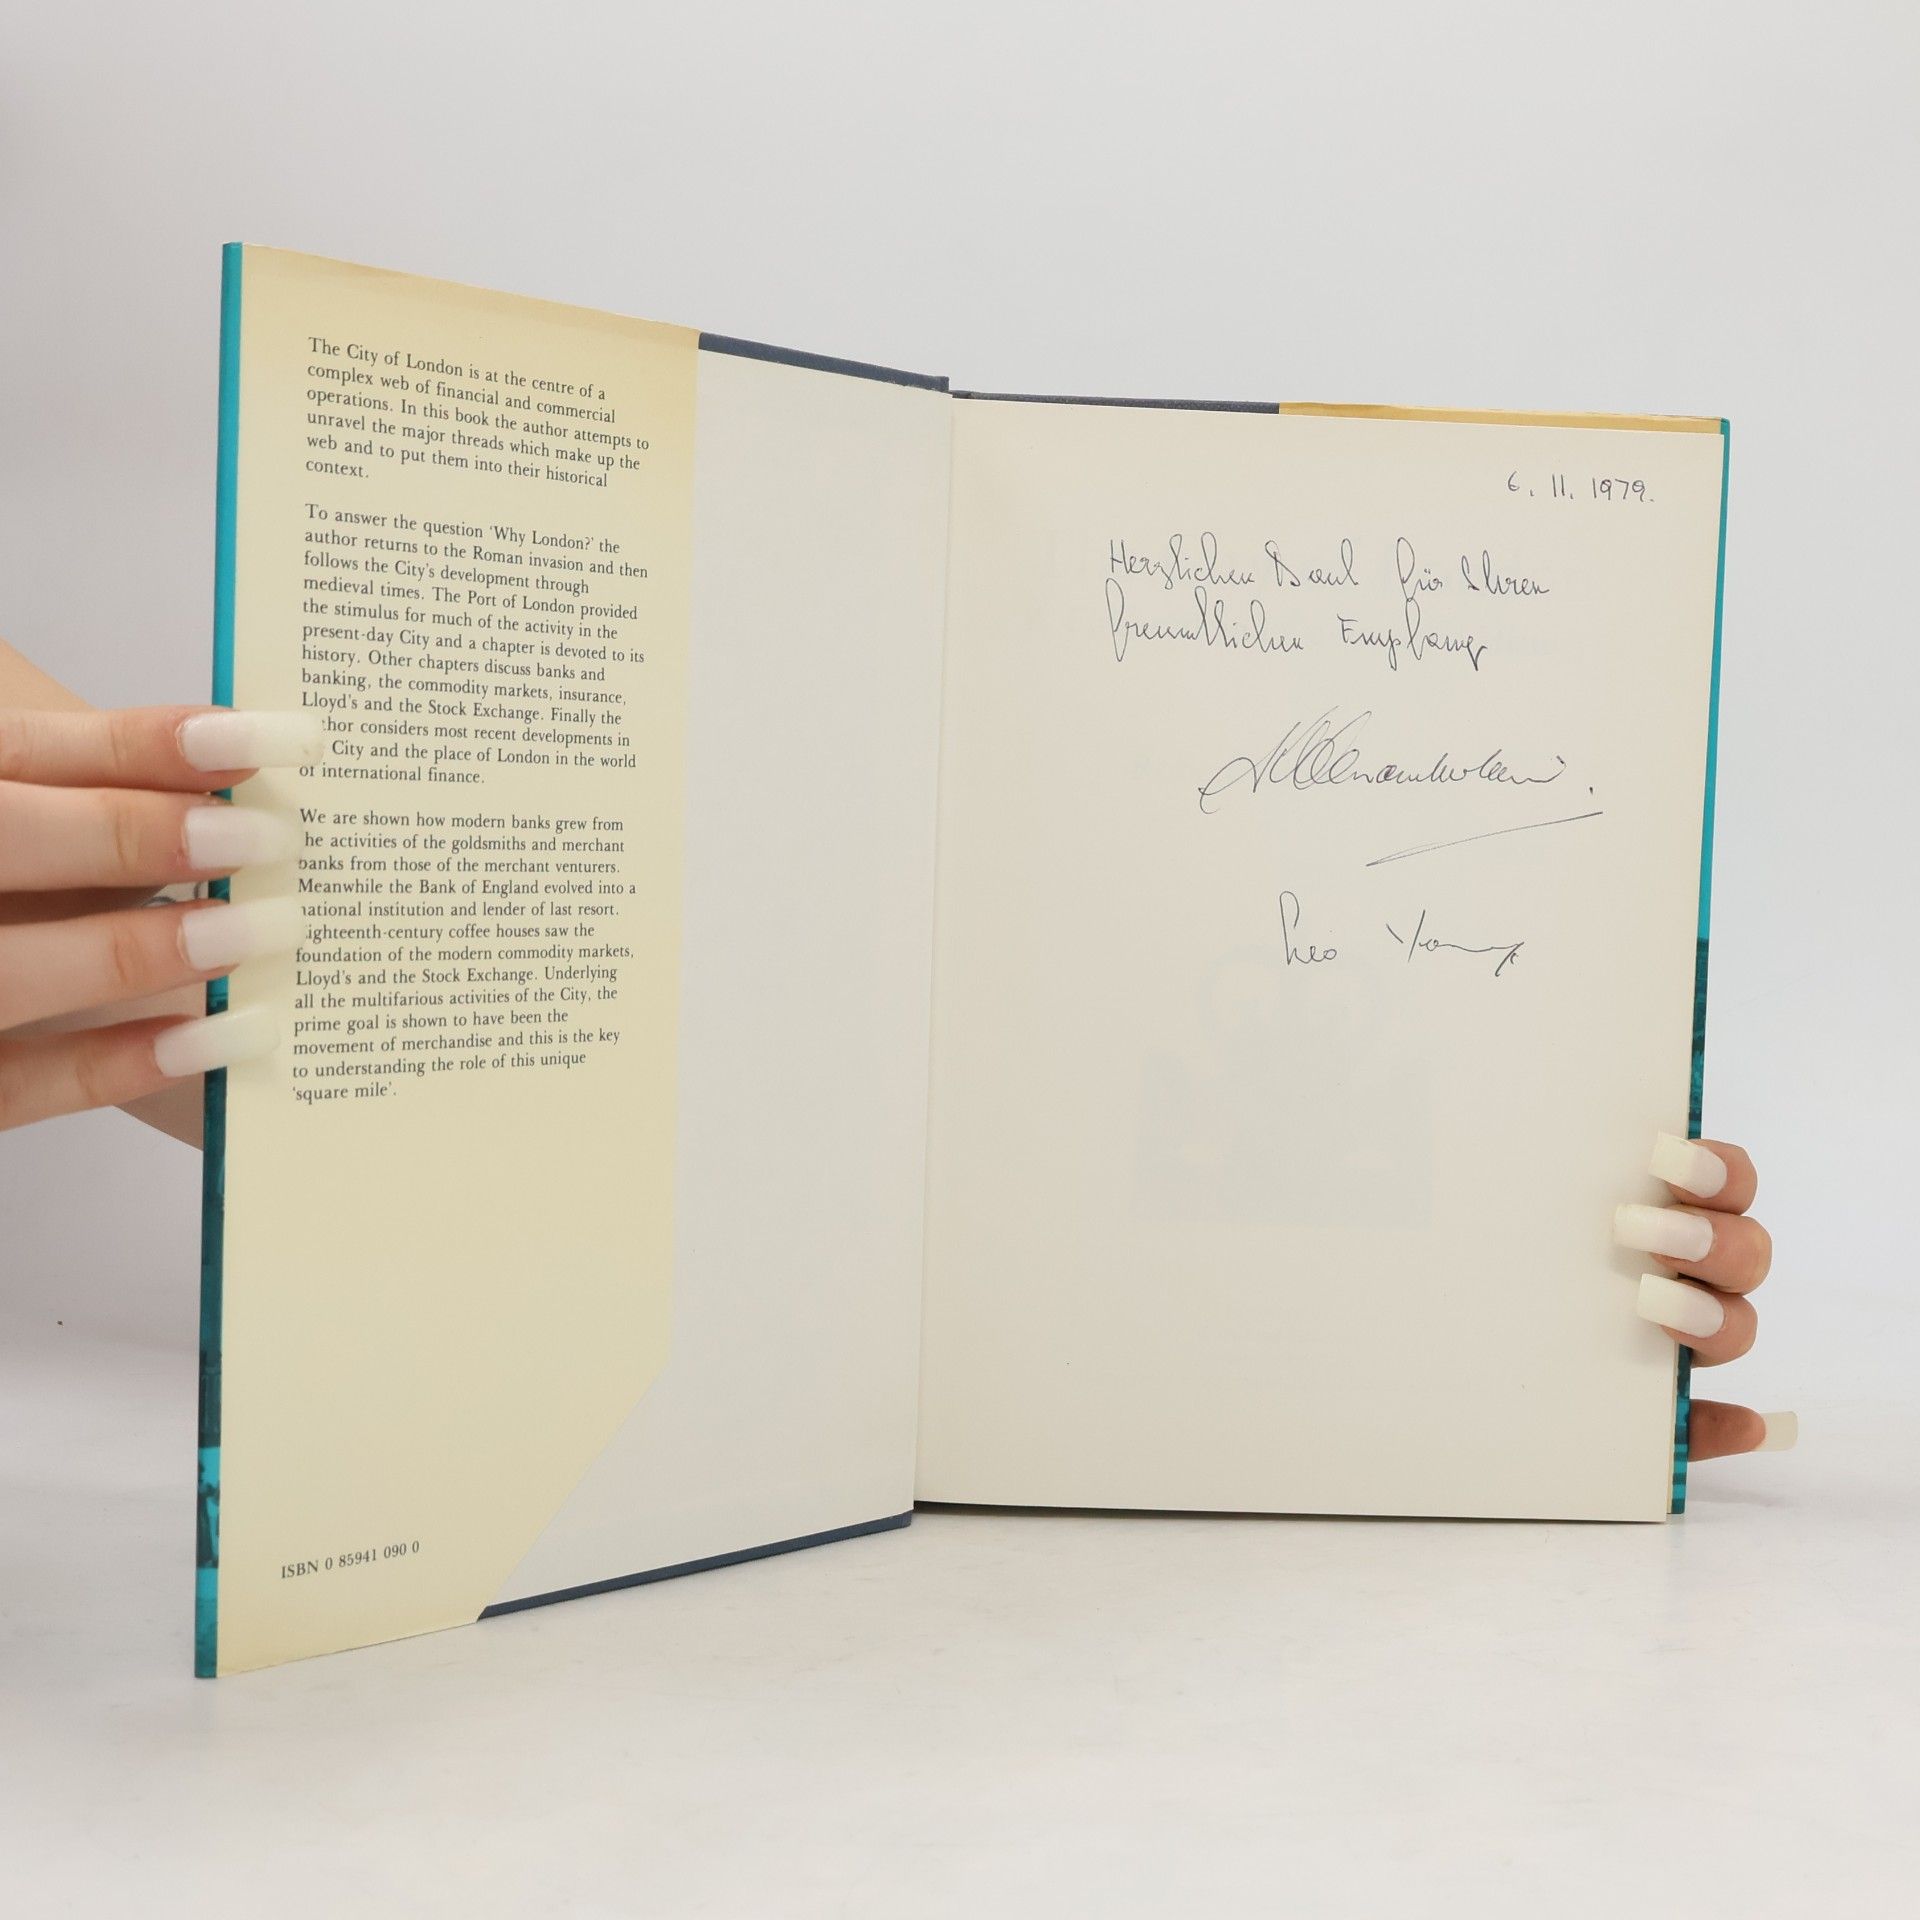 The City of London is at the centre of a
complex web of financial and commercial
operations. In this book the author attempts to
unravel the major threads which make up the
web and to put them into their historical
context.
To answer the question 'Why London?' the
author returns to the Roman invasion and then
follows the City's development through
medieval times. The Port of London provided
the stimulus for much of the activity in the
present-day City and a chapter is devoted to its
history. Other chapters discuss banks and
banking, the commodity markets, insurance,
Lloyd's and the Stock Exchange. Finally the
thor considers most recent developments in
City and the place of London in the world
of international finance.
We are shown how modern banks grew from
he activities of the goldsmiths and merchant
banks from those of the merchant venturers.
Meanwhile the Bank of England evolved into a
national institution and lender of last resort.
ighteenth-century coffee houses saw the
foundation of the modern commodity markets,
Lloyd's and the Stock Exchange. Underlying
all the multifarious activities of the City, the
prime goal is shown to have been the
movement of merchandise and this is the key
to understanding the role of this unique
'square mile'.
ISBN 0 85941 090 0
6. 11. 1979.
Herzlichen Dank für Ihren
freundlichen Empfang
Leo Young